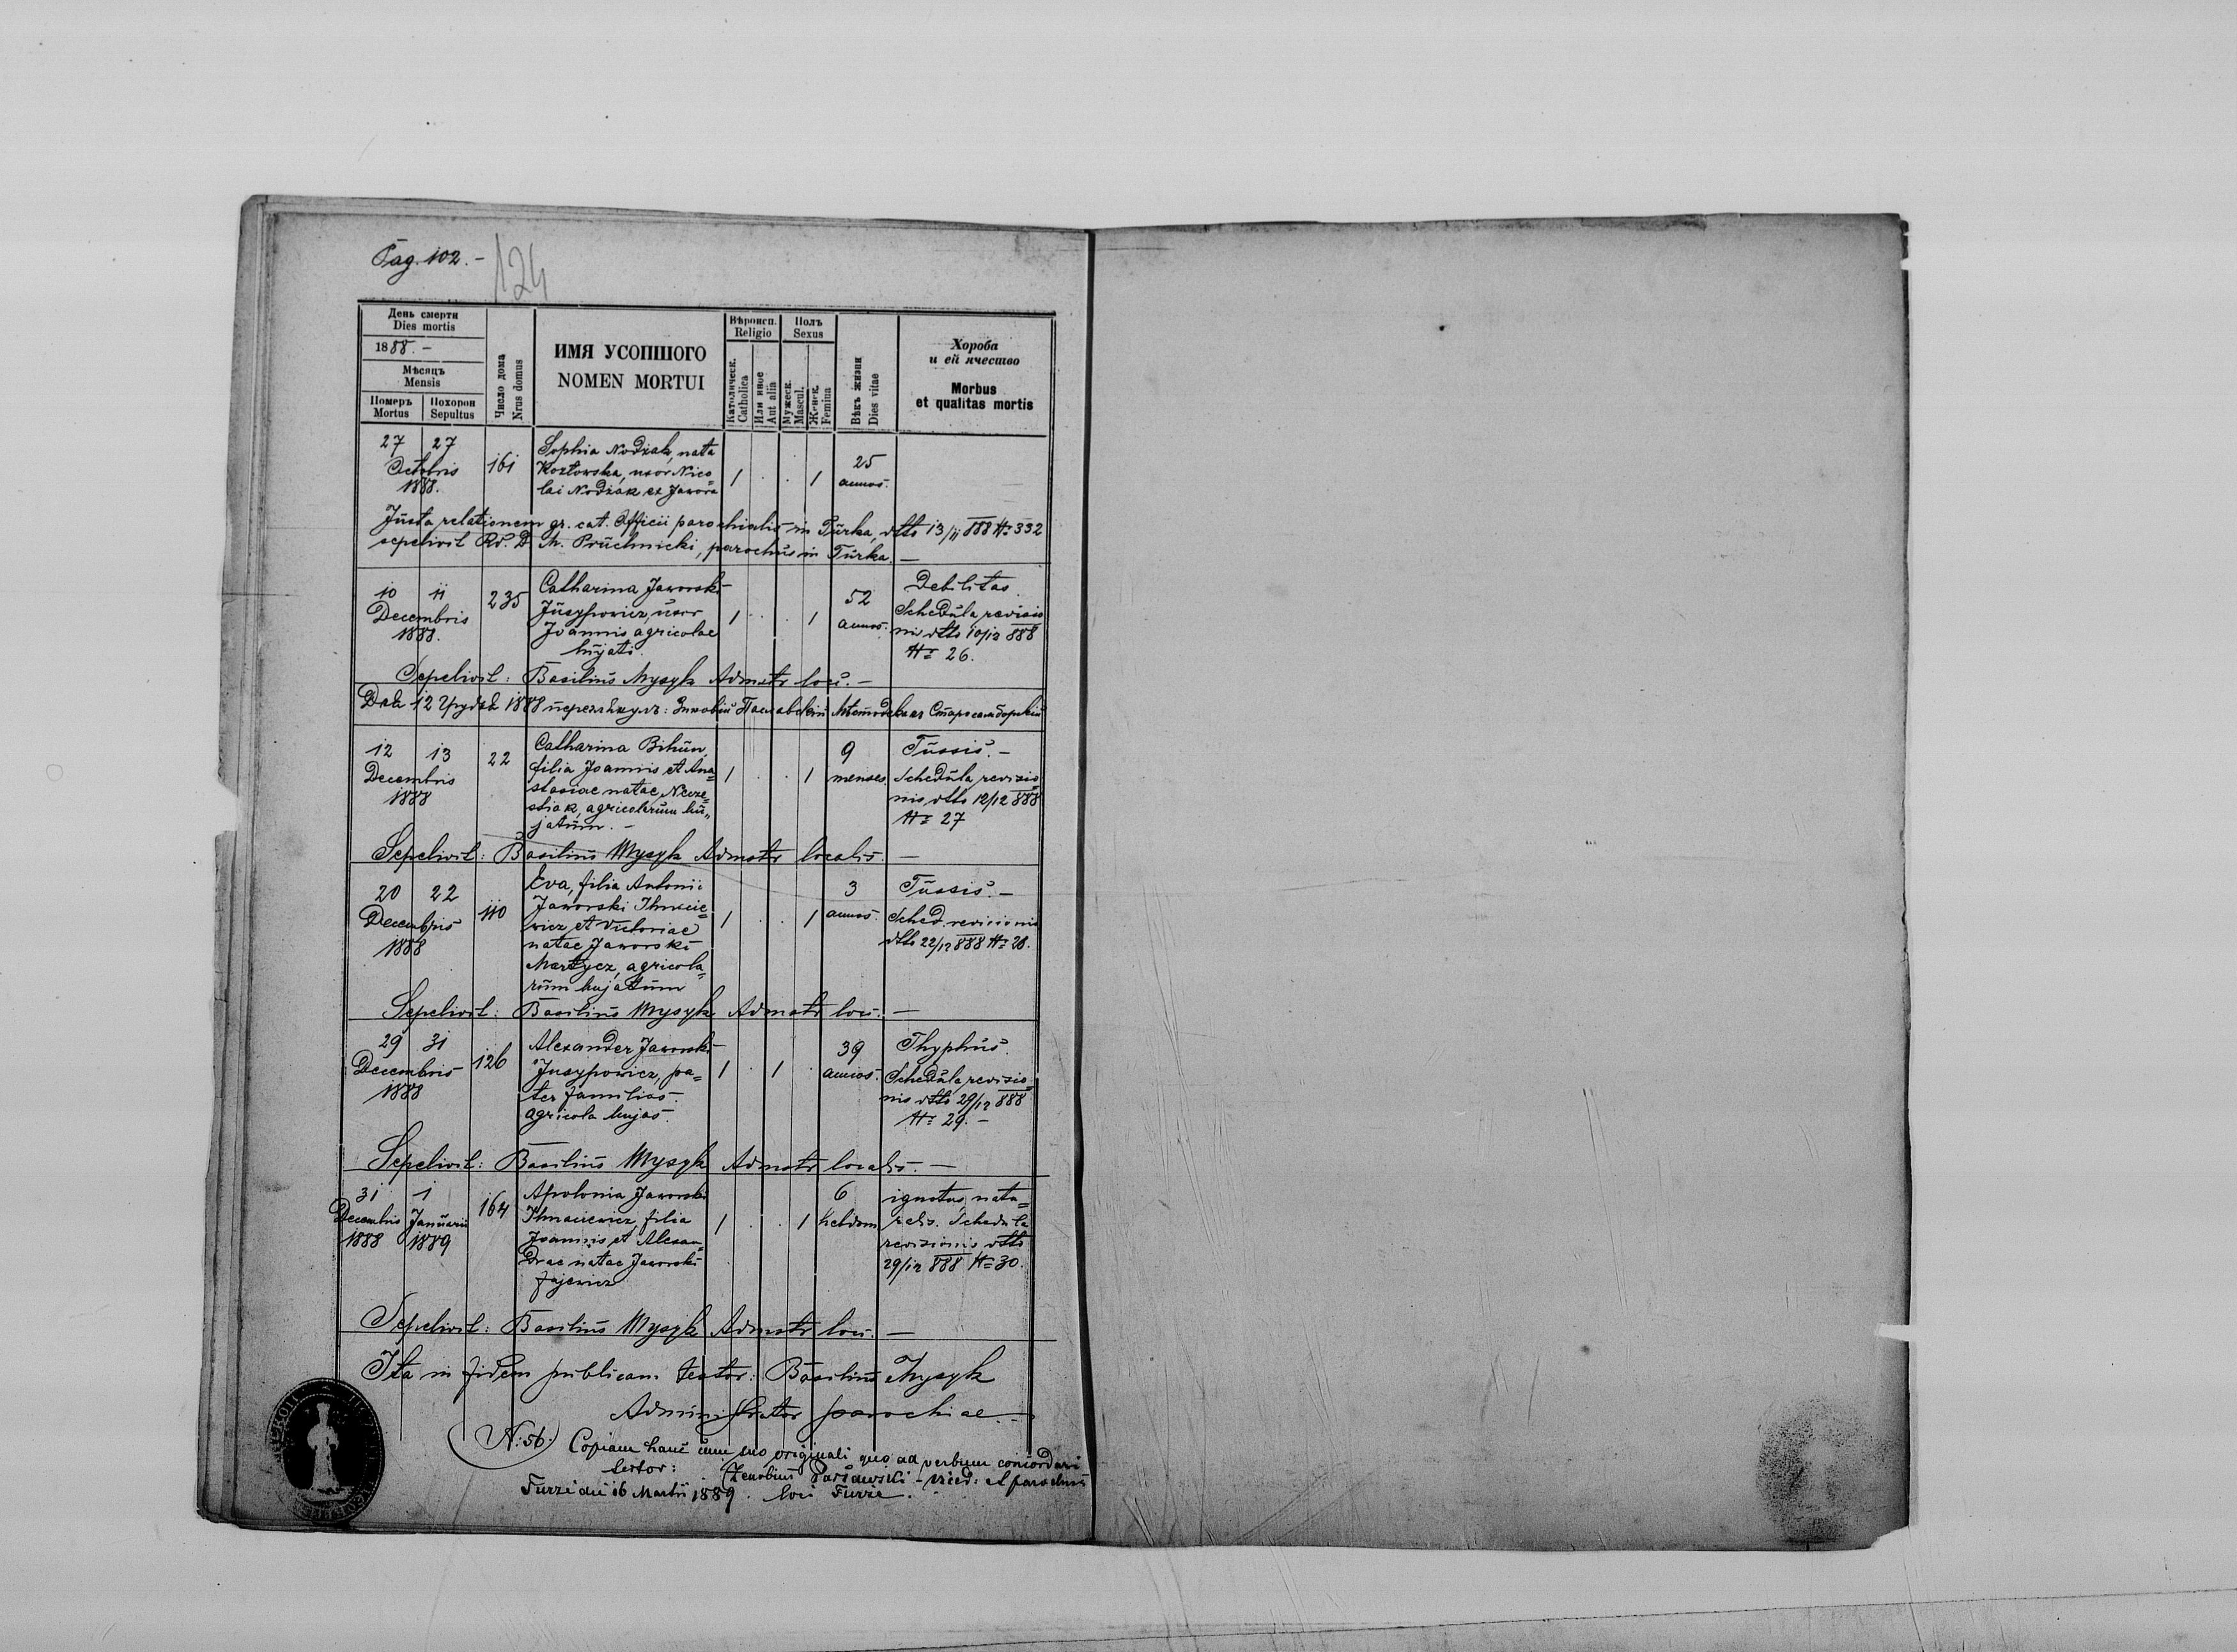 Pag. 102. -
124
День смерти
Dies mortis
1888. -
Мѣсяць
Mensis
Померъ
Mortus
Похорон
Sepultus
Число дома
Nrus domus
ИМЯ УСОПШОГО
NOMEN MORTUI
Вѣроисп.
Religio
Католическ.
Catholica
Или иное
Aut alia
Полъ
Sexus
Мужеск.
Mascul.
Женск.
Femina
Вѣкъ жизни
Dies vitae
Хороба
и ей ячество
Morbus
et qualitas mortis
27 27
Octobris
1888.
161
Sophia Nodżak, nata
Kozłowska, uxor Nico=
lai Nodżak ex Jawora
1 . . 1
25
annos.
Juxta relationem gr. cat. Officii parochialis in Turka, dtto 13/11 888 N= 332
sepelivit Rv. D. M. Pruchnicki, parochus in Turka. —
10 11
Decembris
1888.
235
Catharina Jaworski
Jusypowicz, uxor
Joannis agricolae
hujati.
1 . . 1
52
annos.
Debilitas.
Schedula revisio
nis dtto 10/12 888
N= 26.
Sepelivit: Basilius Mysyk Admstr loci. —
Дня 12 Грудня 1888 Зиновій
12 13
Decembris
1888
22
Catharina Bihun,
filia Joannis et Ana=
stasiae natae
agricolarum hu=
jatum. -
1 . . 1
9
menses.
Tussis. -
Schedula revisio
nis dtto 12/12 888
N= 27
Sepelivit: Basilius Mysyk Admstr localis. —
20 22
Decembris
1888
110
Eva, filia Antonii
Jaworski Ihnacie=
wicz et Victoriae
natae Jaworski
Martycz, agricola=
rum hujatum
1 . . 1
3
annos.
Tussis. -
Sched. revisionis
dtto 22/12 888 N= 28.
Sepelivit: Basilius Mysyk Admstr loci. —
29 31
Decembris
1888
126
Alexander Jaworski
Jusypowicz, pa=
ter familias.
agricola hujas.
1 . 1 .
39
annos.
Thyphus.
Schedula revisio=
nis dtto 29/12 888
N= 29. -
Sepelivit: Basilius Mysyk Admstr localis. —
31 1
Decembris Januarii
1888 1889
164
Apolonia Jaworski
Ihnaciewicz, filia
Joannis et Alexan=
drae natae Jaworski
Fajewicz
1 . . 1
6
hebdom.
ignotus, natu=
ralis. Schedula
revisionis dtto
29/12 888 N= 30.
Sepelivit: Basilius Mysyk Admstr loci. —
Ita in fidem publicam testor: Basilius Mysyk
Administrator parochiae. -
N: 56. Copiam hanc cum suo originali quo ad verbum concordari
testor: Zenobius - viced: et parochus
Turze die 16 Martii 1889. loci Turze.